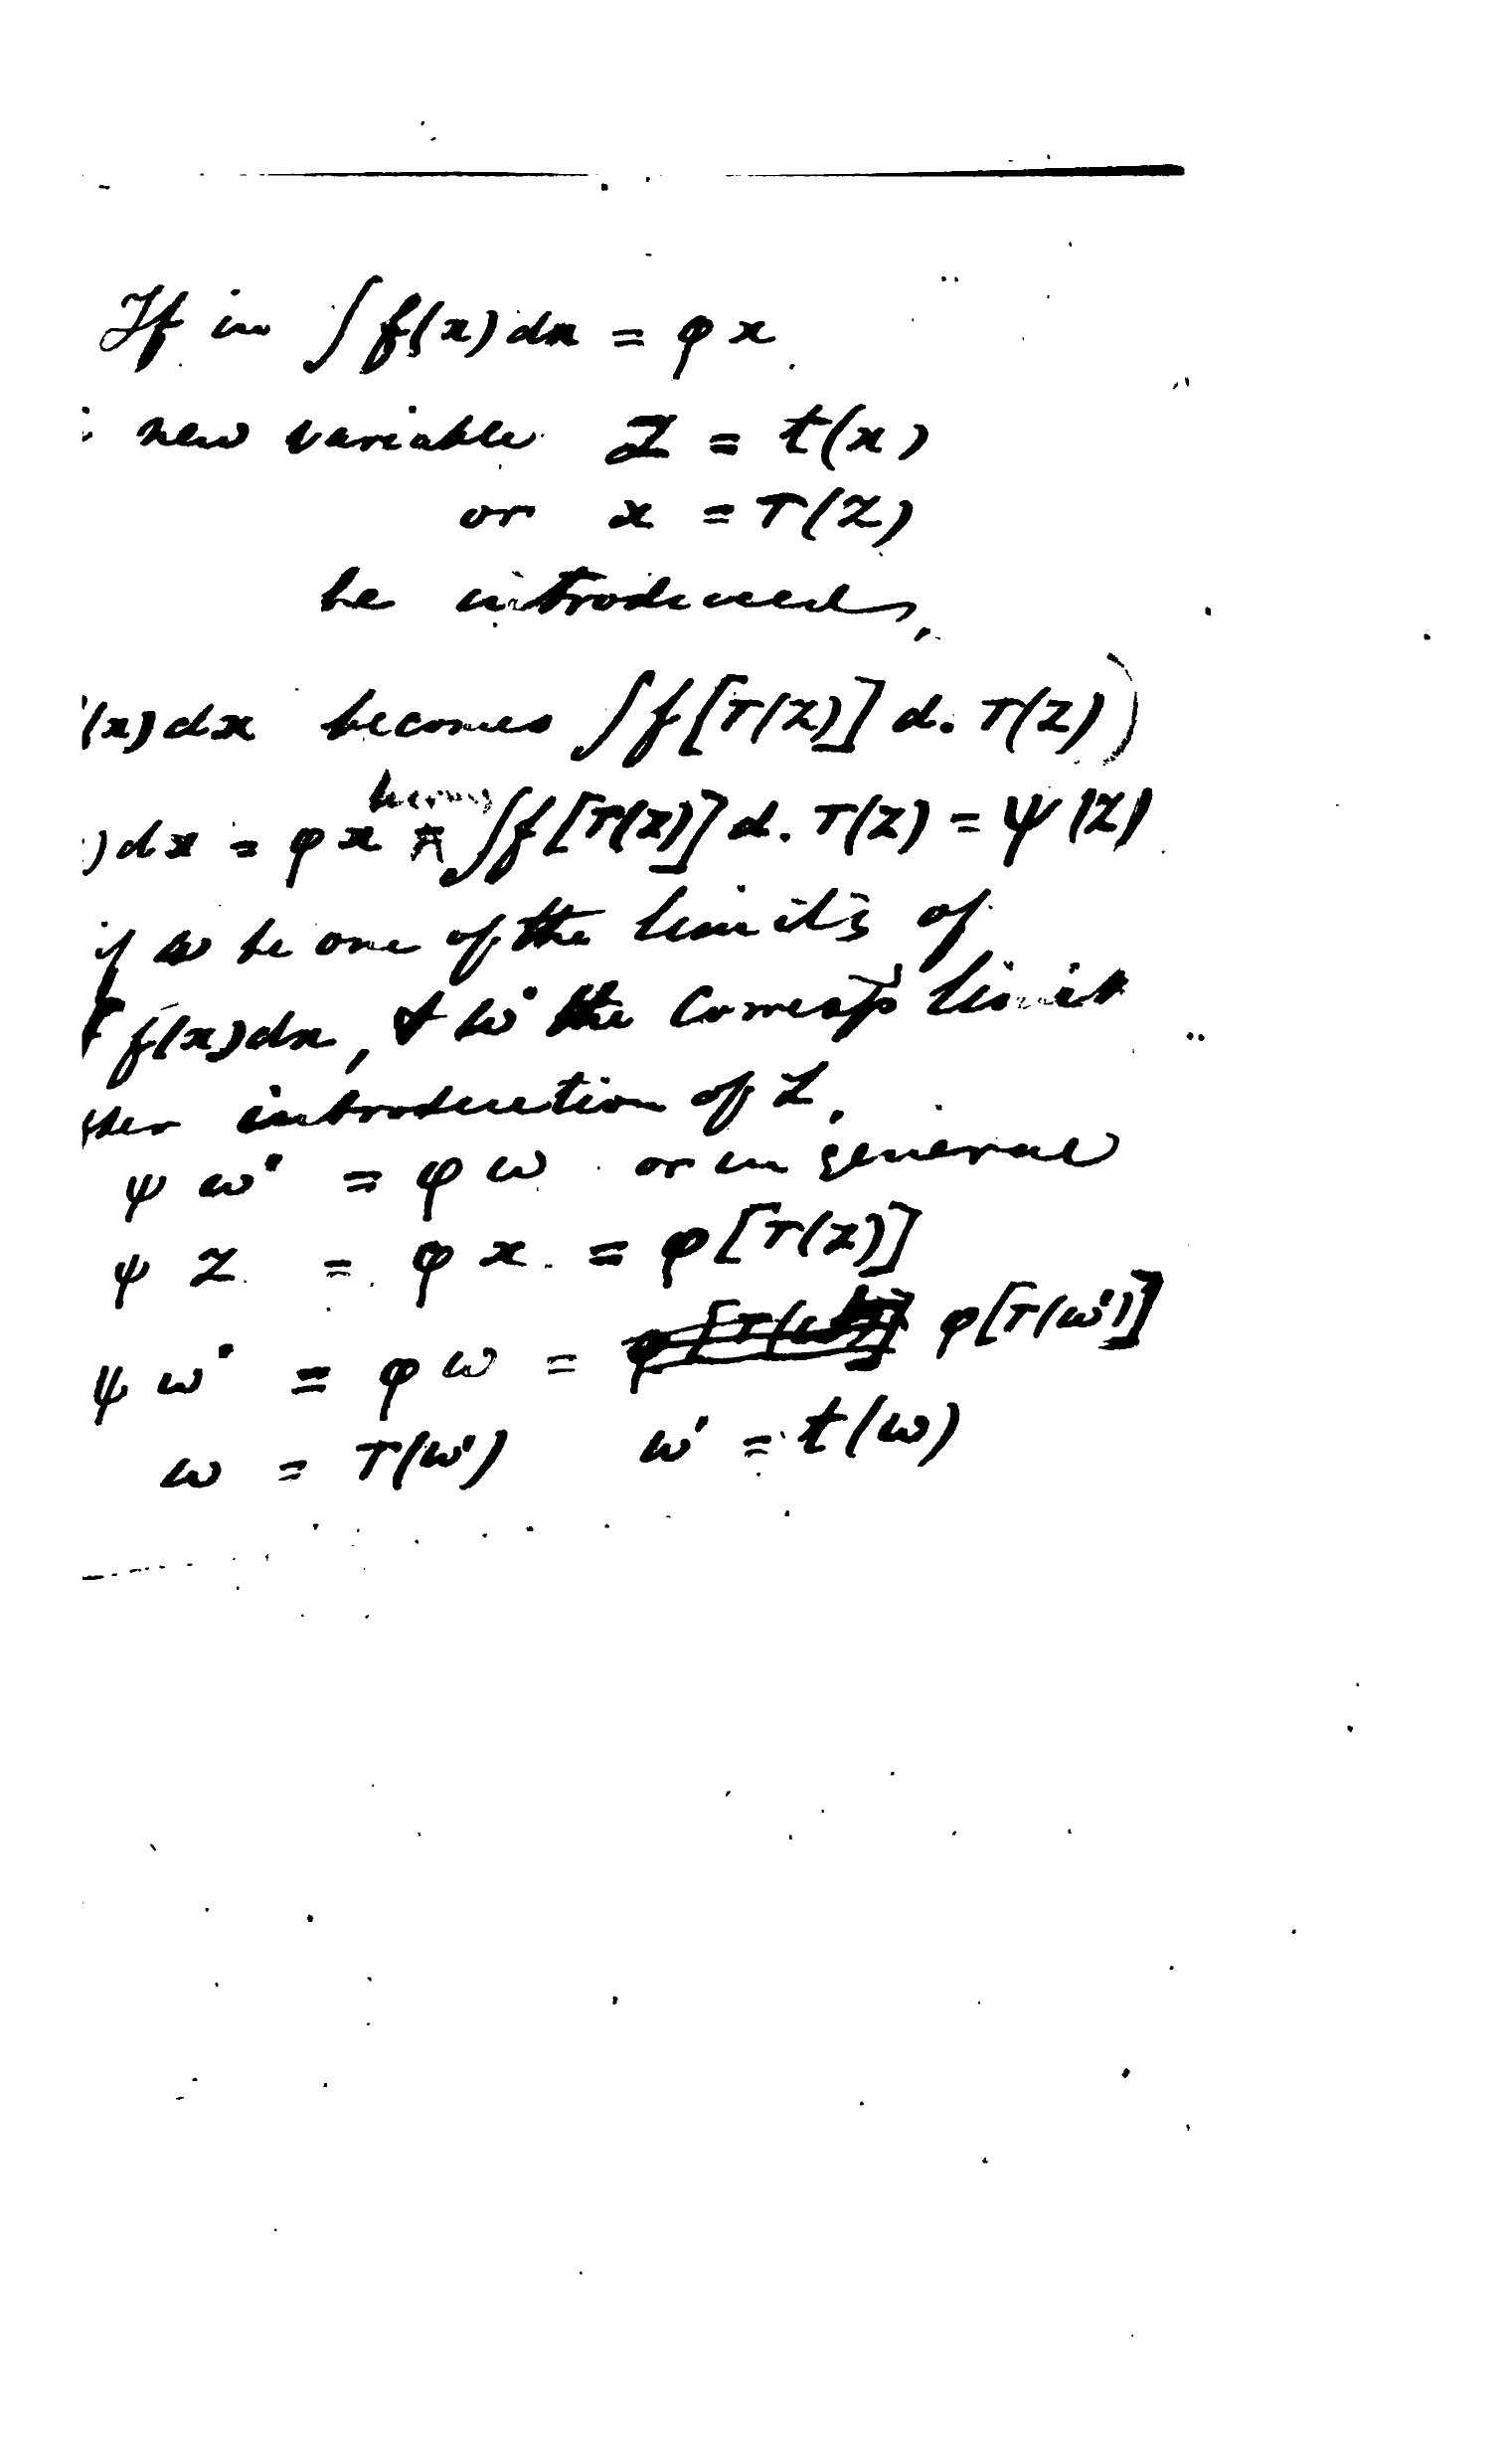 If in ∫f(x)dx = φx
new variable Z = t(x)
or x = T(Z)
be introduced,
(x)dx becomes ∫f[T(Z)] d. T(Z))
)dx = φx ∫f[T(Z)] d. T(Z) = ψ(Z)
if ω be one of the limits of
∫f(x)dx, & ω' the Corresp limit
introduction of Z.
ψω' = φω or in general
ψZ = φx = φ[T(Z)]
ψω' = φω = φ[T(ω')]
ω = T(ω') ω' = t(ω)